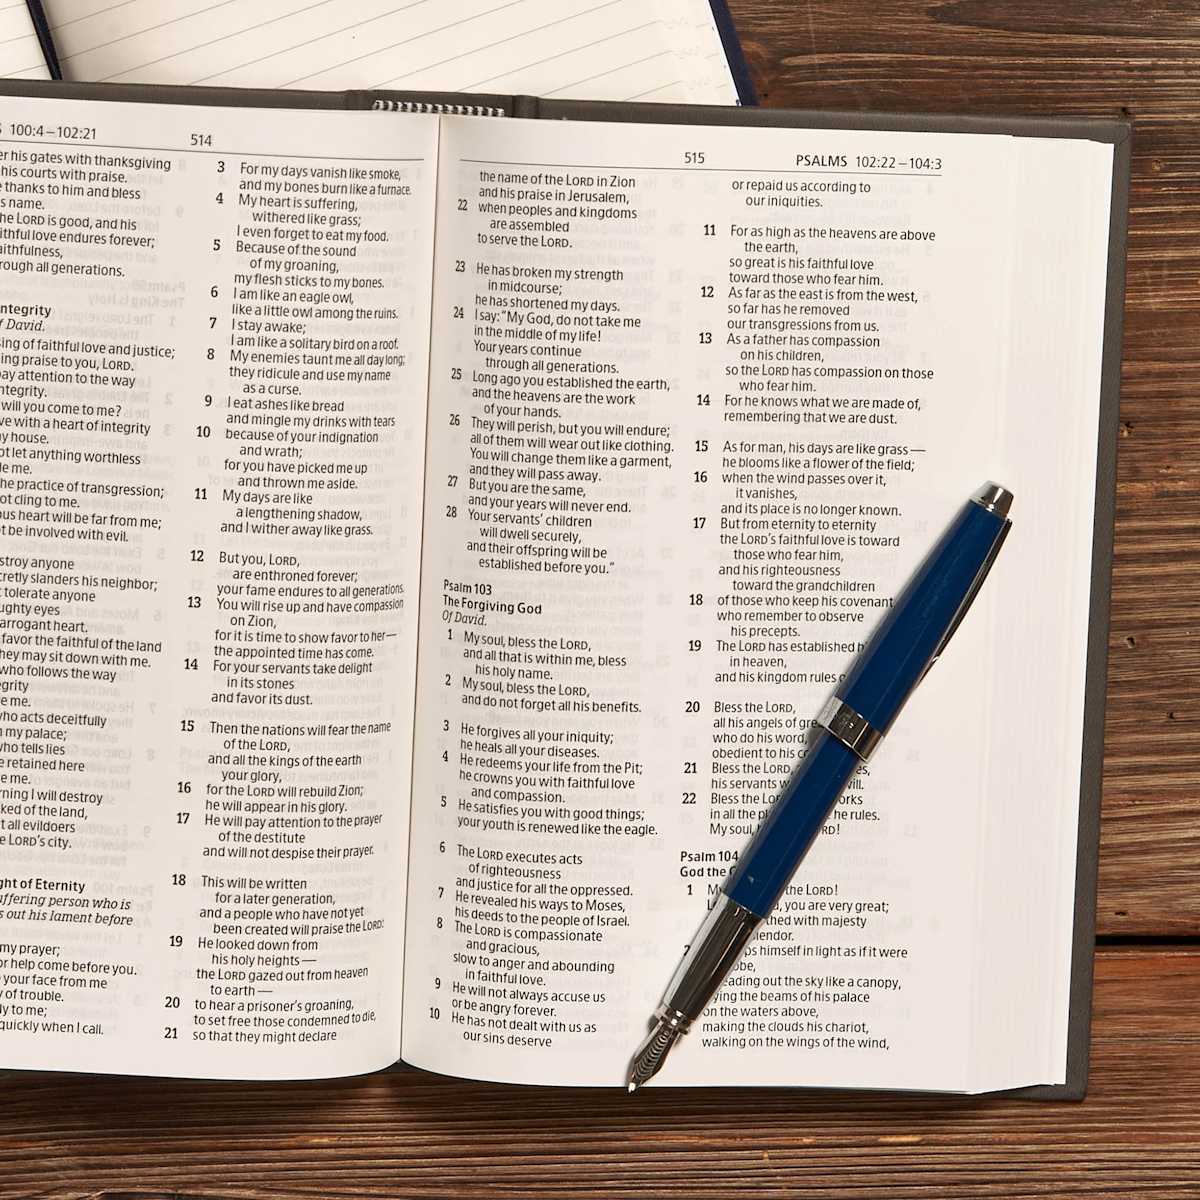 100:4–102:21
514
his gates with thanksgiving
his courts with praise.
thanks to him and bless
name.
LORD is good, and his
love endures forever;
through all generations.
of David.
of faithful love and justice;
praise to you, LORD.
pay attention to the way
will you come to me?
with a heart of integrity
my house.
let anything worthless
me.
the practice of transgression;
cling to me.
heart will be far from me;
be involved with evil.
anyone
slanders his neighbor;
tolerate anyone
eyes
arrogant heart.
favor the faithful of the land
they may sit down with me.
who follows the way
me.
who acts deceitfully
my palace;
who tells lies
retained here
me.
I will destroy
of the land,
all evildoers
LORD's city.
of Eternity
person who is
out his lament before
my prayer;
help come before you.
your face from me
of trouble.
to me;
quickly when I call.
3 For my days vanish like smoke,
and my bones burn like a furnace.
4 My heart is suffering,
withered like grass;
I even forget to eat my food.
5 Because of the sound
of my groaning,
my flesh sticks to my bones.
6 I am like an eagle owl,
like a little owl among the ruins.
7 I stay awake;
I am like a solitary bird on a roof.
8 My enemies taunt me all day long;
they ridicule and use my name
as a curse.
9 I eat ashes like bread
and mingle my drinks with tears
10 because of your indignation
and wrath;
for you have picked me up
and thrown me aside.
11 My days are like
a lengthening shadow,
and I wither away like grass.
12 But you, LORD,
are enthroned forever;
your fame endures to all generations.
13 You will rise up and have compassion
on Zion,
for it is time to show favor to her—
the appointed time has come.
14 For your servants take delight
in its stones
and favor its dust.
15 Then the nations will fear the name
of the LORD,
and all the kings of the earth
your glory,
16 for the LORD will rebuild Zion;
he will appear in his glory.
17 He will pay attention to the prayer
of the destitute
and will not despise their prayer.
18 This will be written
for a later generation,
and a people who have not yet
been created will praise the LORD:
19 He looked down from
his holy heights—
the LORD gazed out from heaven
to earth—
20 to hear a prisoner's groaning,
to set free those condemned to die,
21 so that they might declare
515
PSALMS 102:22–104:3
the name of the LORD in Zion
and his praise in Jerusalem,
22 when peoples and kingdoms
are assembled
to serve the LORD.
23 He has broken my strength
in midcourse;
he has shortened my days.
24 I say: "My God, do not take me
in the middle of my life!
Your years continue
through all generations.
25 Long ago you established the earth,
and the heavens are the work
of your hands.
26 They will perish, but you will endure;
all of them will wear out like clothing.
You will change them like a garment,
and they will pass away.
27 But you are the same,
and your years will never end.
28 Your servants' children
will dwell securely,
and their offspring will be
established before you."
Psalm 103
The Forgiving God
Of David.
1 My soul, bless the LORD,
and all that is within me, bless
his holy name.
2 My soul, bless the LORD,
and do not forget all his benefits.
3 He forgives all your iniquity;
he heals all your diseases.
4 He redeems your life from the Pit;
he crowns you with faithful love
and compassion.
5 He satisfies you with good things;
your youth is renewed like the eagle.
6 The LORD executes acts
of righteousness
and justice for all the oppressed.
7 He revealed his ways to Moses,
his deeds to the people of Israel.
8 The LORD is compassionate
and gracious,
slow to anger and abounding
in faithful love.
9 He will not always accuse us
or be angry forever.
10 He has not dealt with us as
our sins deserve
or repaid us according to
our iniquities.
11 For as high as the heavens are above
the earth,
so great is his faithful love
toward those who fear him.
12 As far as the east is from the west,
so far has he removed
our transgressions from us.
13 As a father has compassion
on his children,
so the LORD has compassion on those
who fear him.
14 For he knows what we are made of,
remembering that we are dust.
15 As for man, his days are like grass—
he blooms like a flower of the field;
16 when the wind passes over it,
it vanishes,
and its place is no longer known.
17 But from eternity to eternity
the LORD's faithful love is toward
those who fear him,
and his righteousness
toward the grandchildren
18 of those who keep his covenant,
who remember to observe
his precepts.
19 The LORD has established
in heaven,
and his kingdom rules
20 Bless the LORD,
all his angels of
who do his word,
obedient to his
21 Bless the LORD,
his servants will.
22 Bless the
in all the he rules.
My soul,
Psalm 104
God the
1 the LORD!
you are very great;
with majesty
himself in light as if it were
out the sky like a canopy,
the beams of his palace
on the waters above,
making the clouds his chariot,
walking on the wings of the wind,